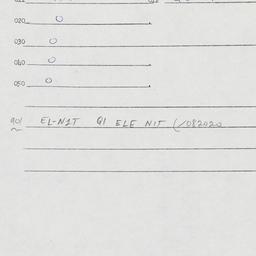 020 O
030 O
040 O
050 O
901 EL-N1T Q1 ELE NIT (/082020